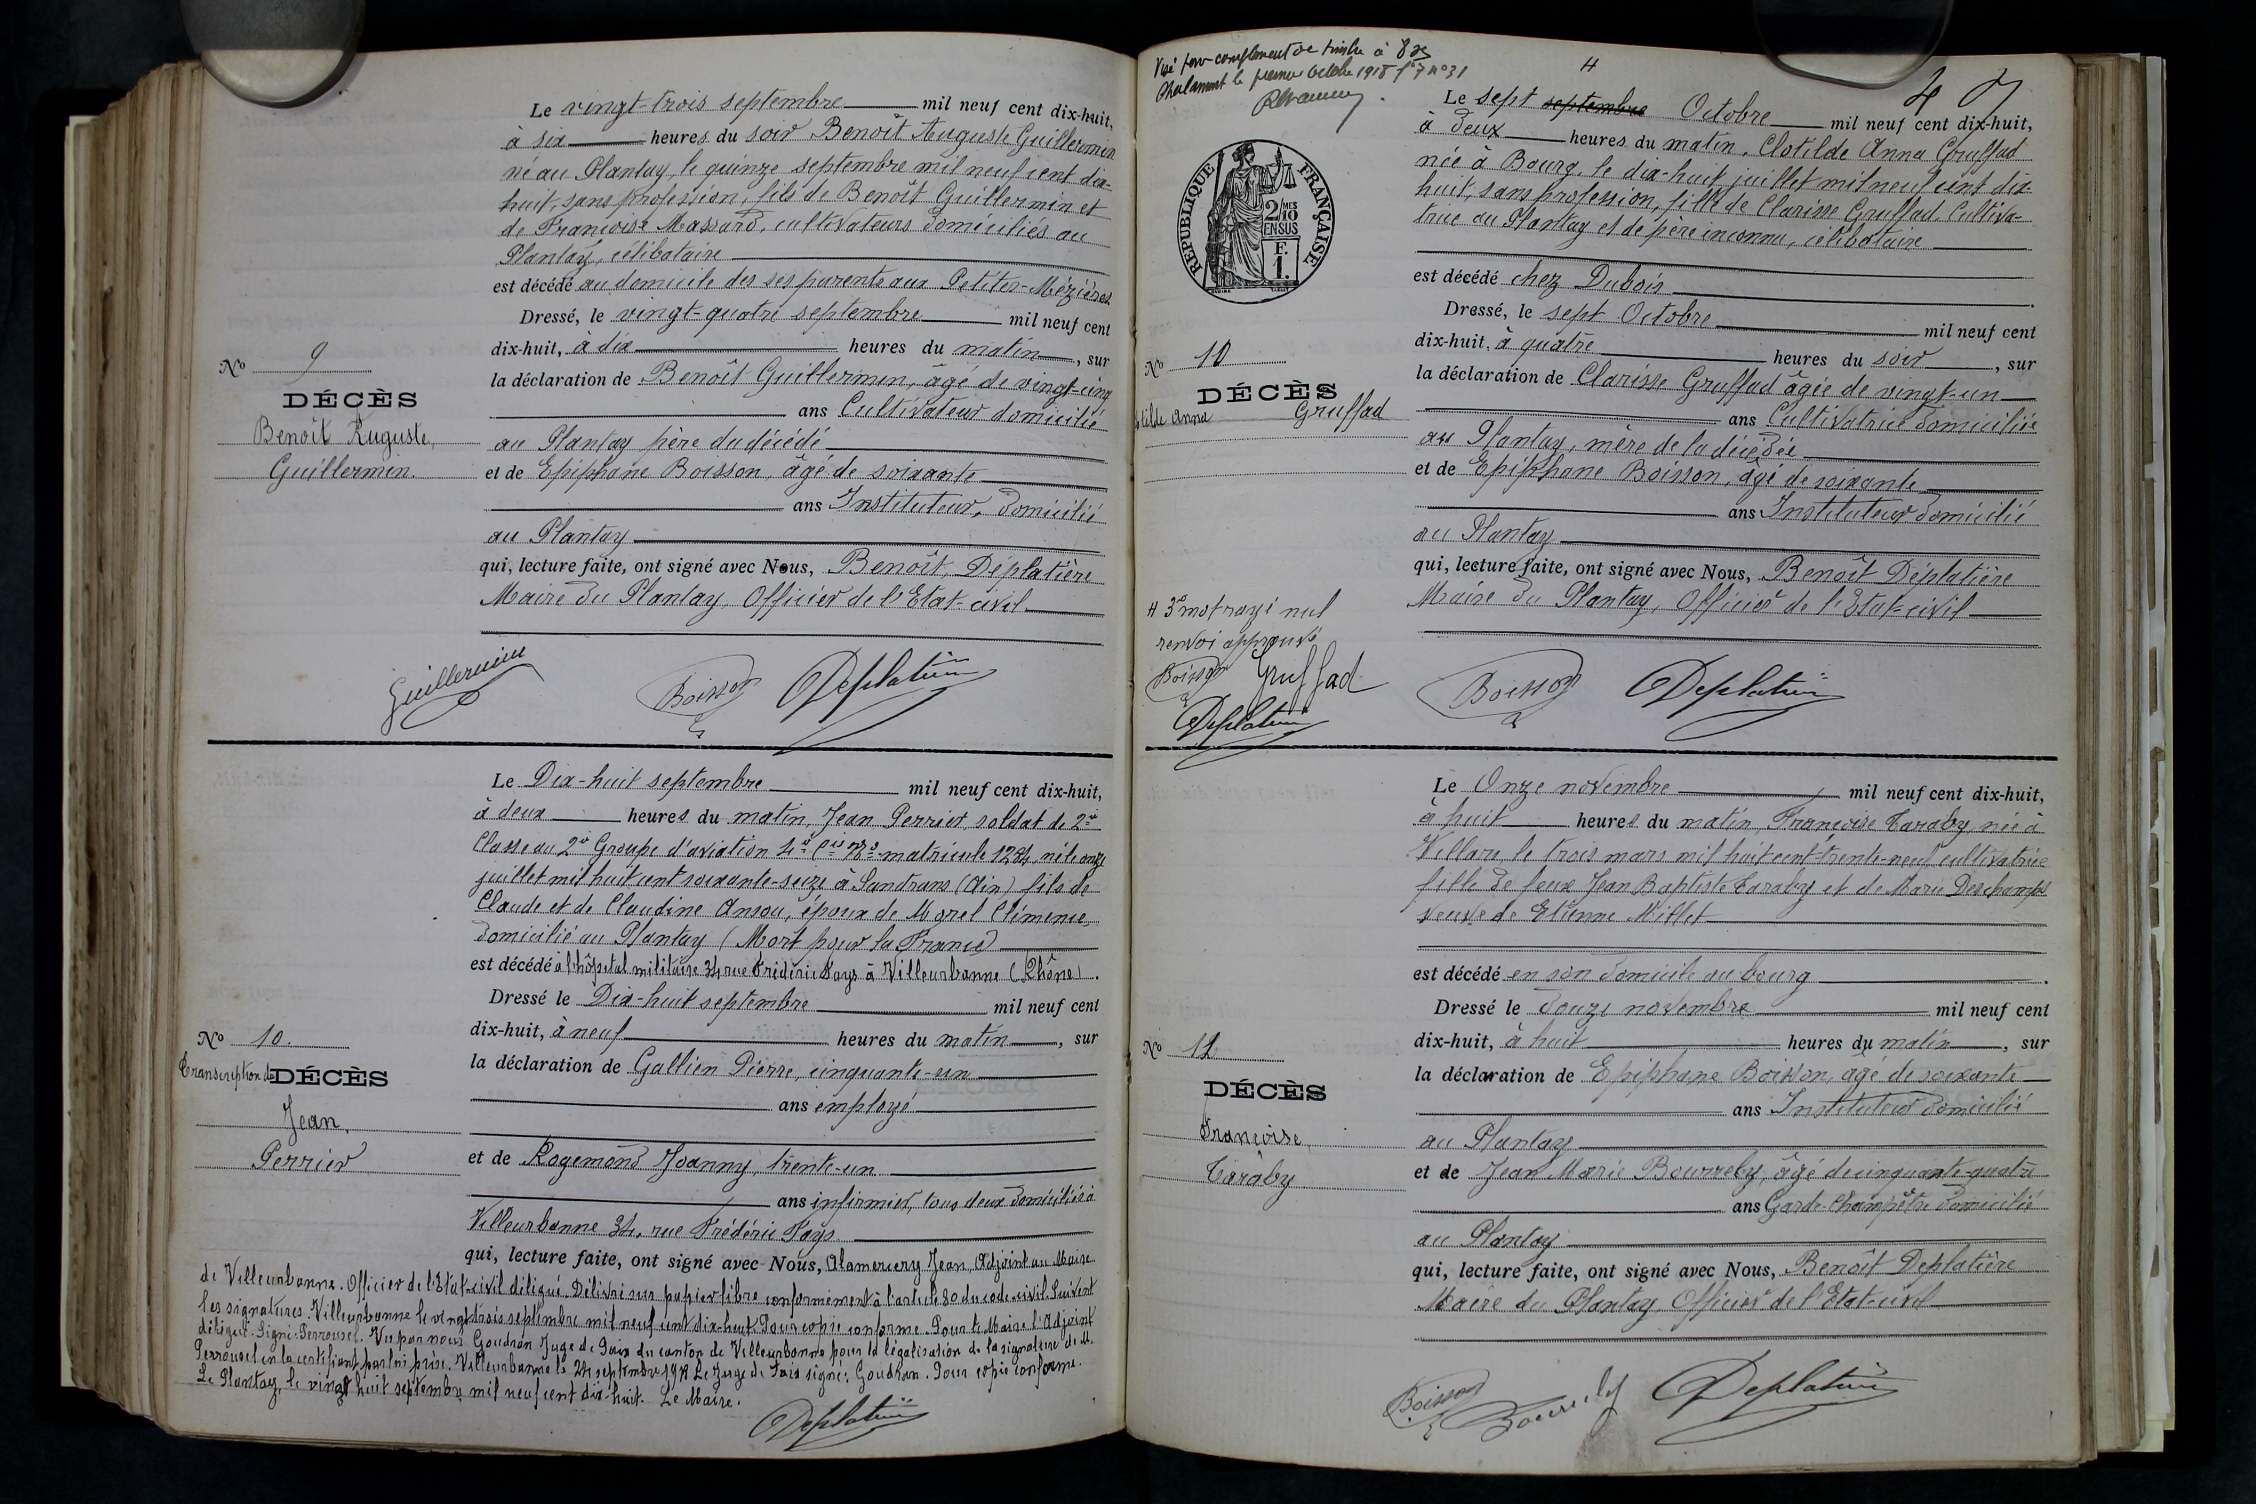 Le vingt-trois septembre mil neuf cent dix-huit,
à six heures du soir Benoît Auguste Guillermin
né au Plantay, le quinze septembre mil neuf cent dix-
huit, sans profession, fils de Benoît Guillermin et
de Françoise Massard, cultivateurs domiciliés au
Plantay, célibataire
est décédé au domicile des ses parents aux Petites-Mézières
Dressé, le vingt-quatre septembre mil neuf cent
dix-huit, à dix heures du matin, sur
la déclaration de Benoît Guillermin, âgé de vingt-cinq
ans Cultivateur domicilié
au Plantay père du décédé
et de Epiphane Boisson, âgé de soixante
ans Instituteur, domicilié
au Plantay
qui, lecture faite, ont signé avec Nous, Benoît, Déplatière
Maire du Plantay, Officier de l'Etat-civil
No 9
DÉCÈS
Benoît Auguste,
Guillermin.
Guillermin Boisson Deplatière
Le Dix-huit septembre mil neuf cent dix-huit,
à deux heures du matin, Jean Perrier, soldat de 2e
Classe au 2e Groupe d'aviation 4e Cie No matricule 1284, né le onze
juillet mil huit cent soixante-seize à Sandrans (Ain) fils de
Claude et de Claudine Anson, époux de Morel Clémence,
domicilié au Plantay (Mort pour la France)
est décédé à l'hôpital militaire 34 rue Frédéric Fays à Villeurbanne (Rhône).
Dressé le Dix-huit septembre mil neuf cent
dix-huit, à neuf heures du matin, sur
la déclaration de Gallien Pierre, cinquante-un
ans employé
et de Rogemond Joanny, trente-un
ans infirmier, tous deux domiciliés à
Villeurbanne 34, rue Frédéric Fays
qui, lecture faite, ont signé avec Nous, Alamercery Jean, Adjoint au Maire
de Villeurbanne. Officier de l'Etat-civil délégué. Délivré sur papier libre conformément à l'article 80 du code civil. Suivent
les signatures. Villeurbanne le vingt trois septembre mil neuf cent dix-huit. Pour copie conforme. Pour le Maire l'Adjoint
délégué. Signé: Perrousel. Vu par nous Goudron Juge de Paix du canton de Villeurbanne pour la légalisation de la signature de M.
Perrousel en la certifiant par lui prise. Villeurbanne le 24 septembre 1918 Le Juge de Paix signé: Goudron. Pour copie conforme.
Le Plantay, le vingt huit septembre mil neuf cent dix-huit. Le Maire.
Deplatière
No 10.
Transcription de DÉCÈS
Jean,
Perrier
Visé pour complément de timbre à
Chalamont le premier Octobre 1918 fo 7 no 31
RÉPUBLIQUE FRANÇAISE
2 MES
10
EN SUS
F.
1.
H
4
Le sept septembre Octobre mil neuf cent dix-huit,
à deux heures du matin, Clotilde Anna Gruffad
née à Bourg, le dix-huit juillet mil neuf cent dix-
huit, sans profession, fille de Clarisse Gruffad, Cultiva-
trice au Plantay et de père inconnu, célibataire
est décédé chez Dubois
Dressé, le sept Octobre mil neuf cent
dix-huit, à quatre heures du soir, sur
la déclaration de Clarisse Gruffad âgée de vingt-un
ans Cultivatrice domiciliée
au Plantay, mère de la décédée
et de Epiphane Boisson, âgé de soixante
ans Instituteur domicilié
au Plantay
qui, lecture faite, ont signé avec Nous, Benoît Déplatière
Maire du Plantay, Officier de l'Etat-civil
No 10
DÉCÈS
tilde Anna Gruffad
H 3e mot rayé nul
renvoi approuvé
Boisson Gruffad
Deplatière
Boisson Deplatière
Le Onze novembre mil neuf cent dix-huit,
à huit heures du matin, Françoise Taraby, née à
Villars, le trois mars mil huit cent trente-neuf, cultivatrice
fille de feux Jean Baptiste Taraby et de Marie Deschamps
veuve de Etienne Millet
est décédé en son domicile au bourg
Dressé le douze novembre mil neuf cent
dix-huit, à huit heures du matin, sur
la déclaration de Epiphane Boisson, âgé de soixante
ans Instituteur domicilié
au Plantay
et de Jean Marie Bourreby, âgé de cinquante-quatre
ans Garde-Champêtre domicilié
au Plantay
qui, lecture faite, ont signé avec Nous, Benoît Deplatière
Maire du Plantay Officier de l'Etat-civil
No 11
DÉCÈS
Françoise,
Taraby
Boisson Deplatière